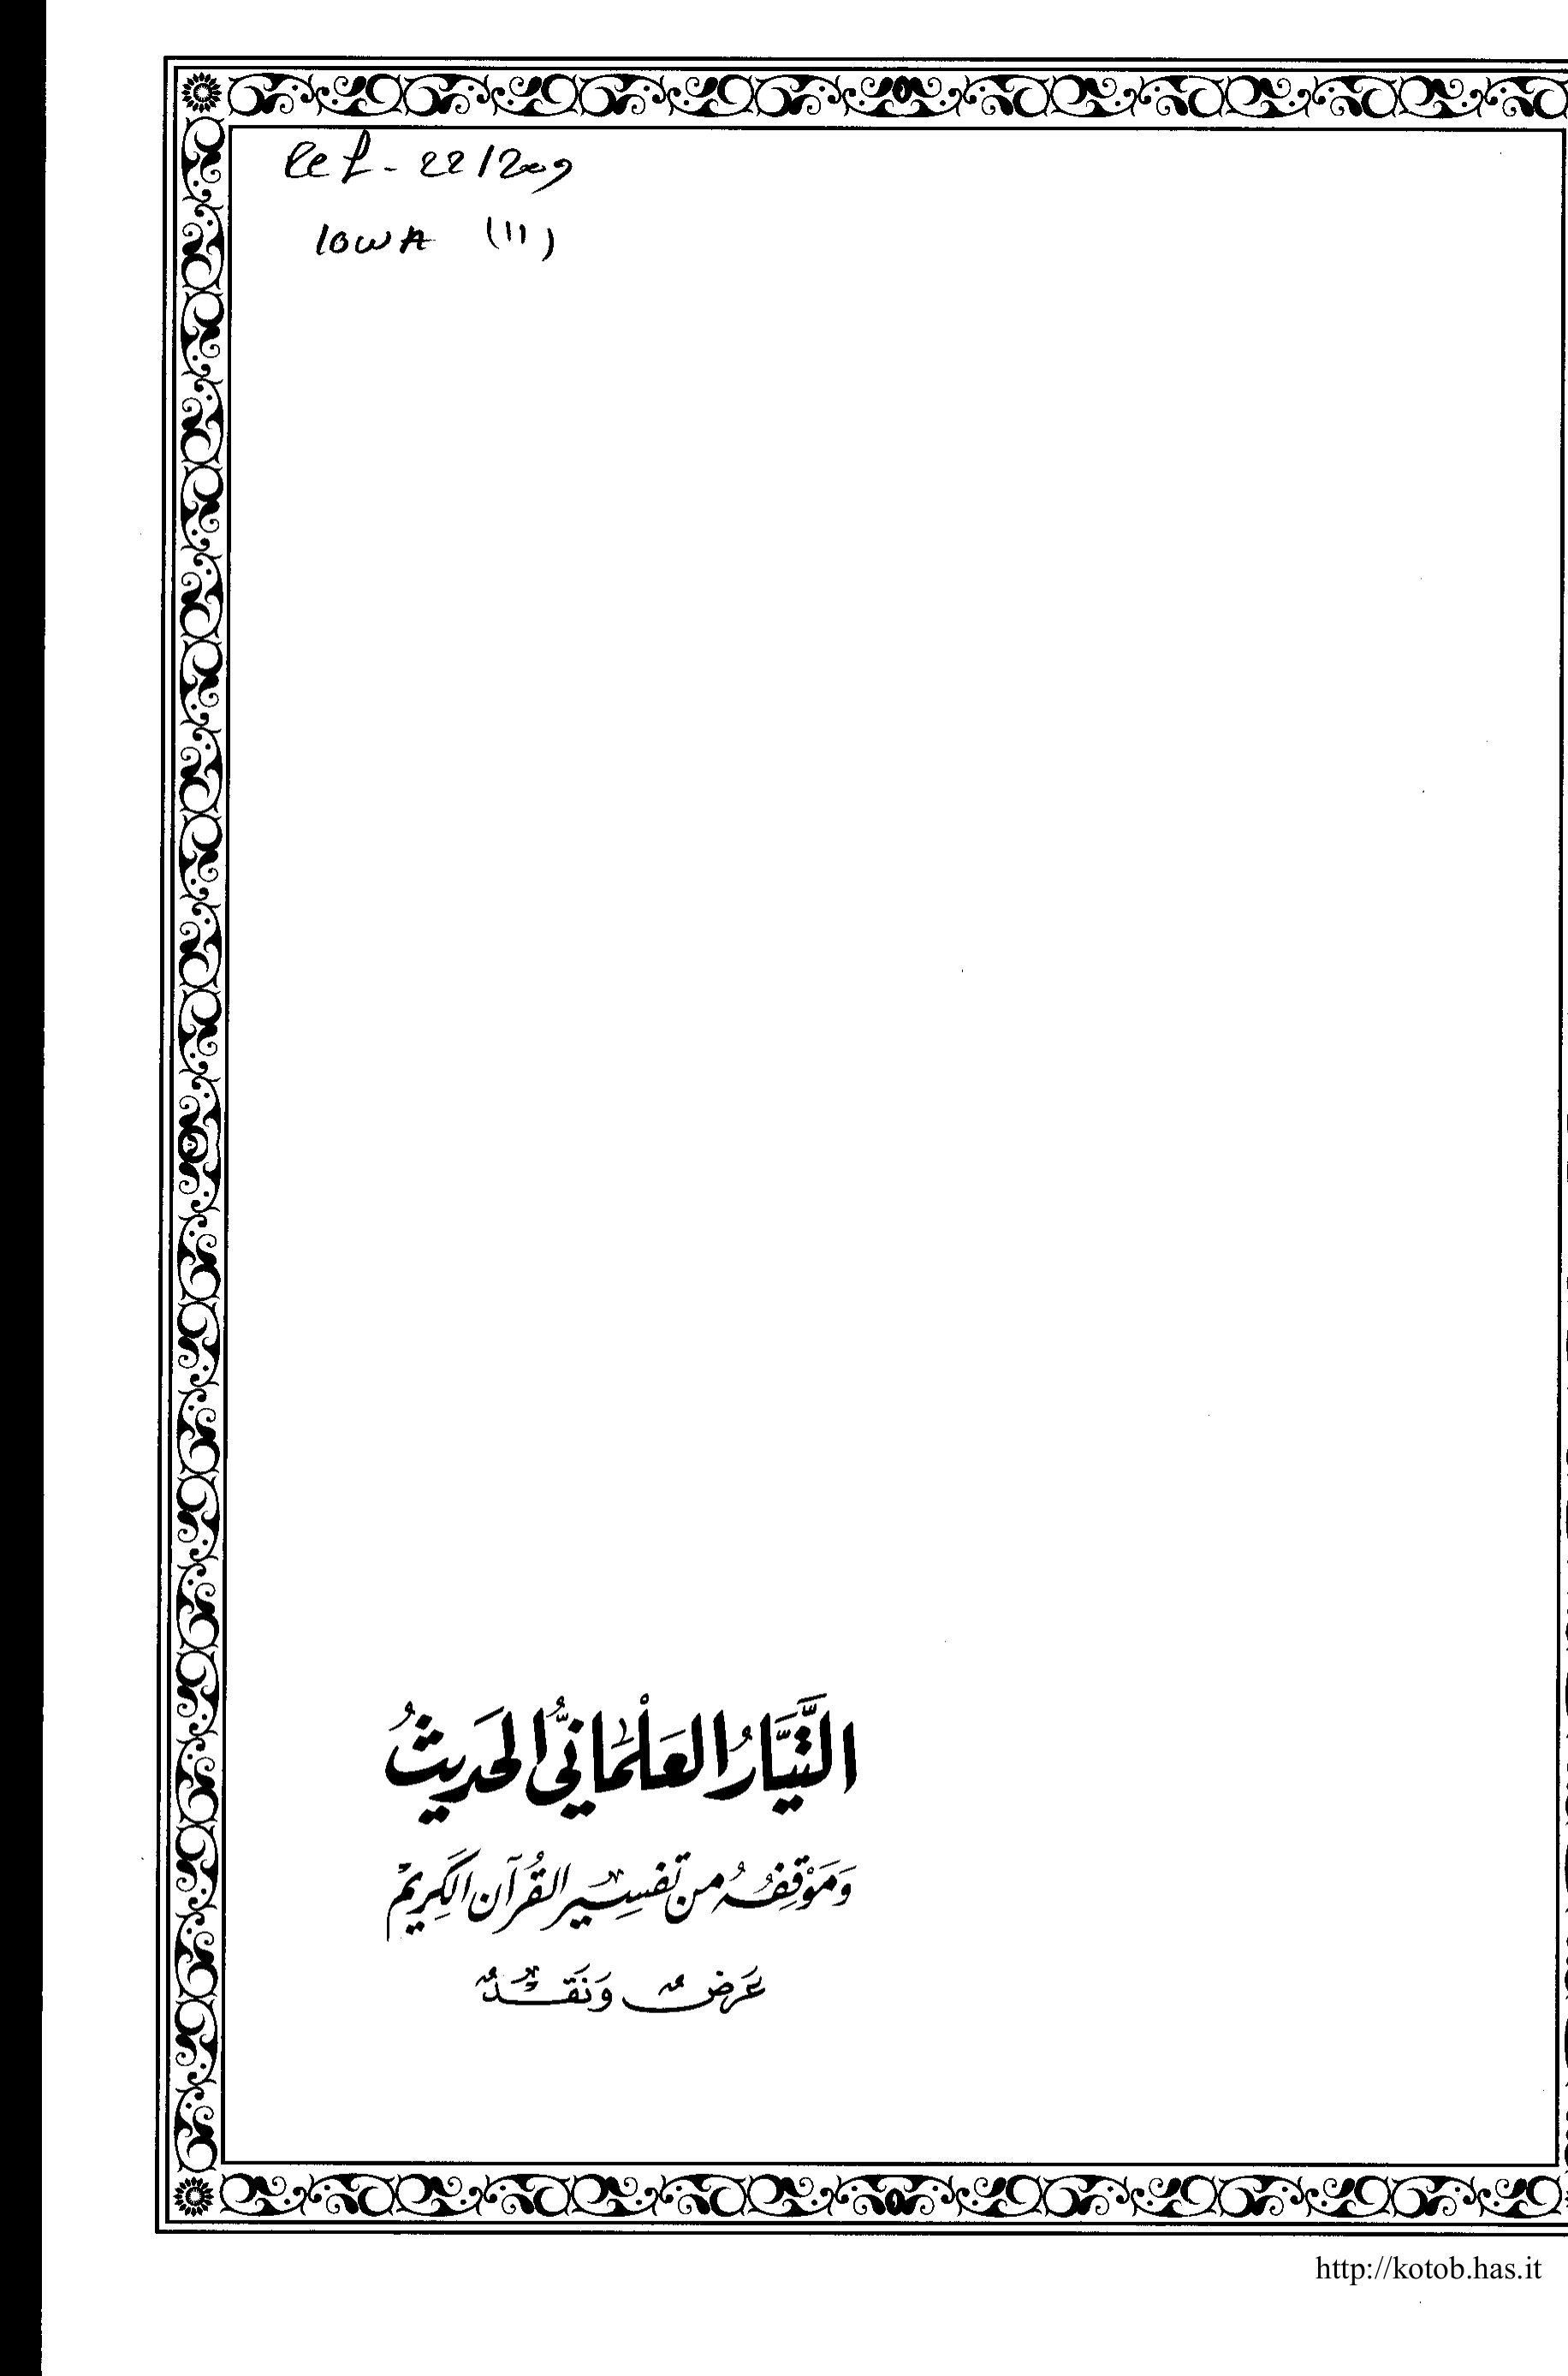 Ref - 22/2009
IOWA (11)
التَّيَّارُ العَلْمَانيُّ الحَديثُ
وَمَوْقِفُهُ من تَفسِير القُرآن الكَرِيمْ
عَرضٌ وَنَقْدٌ
http://kotob.has.it